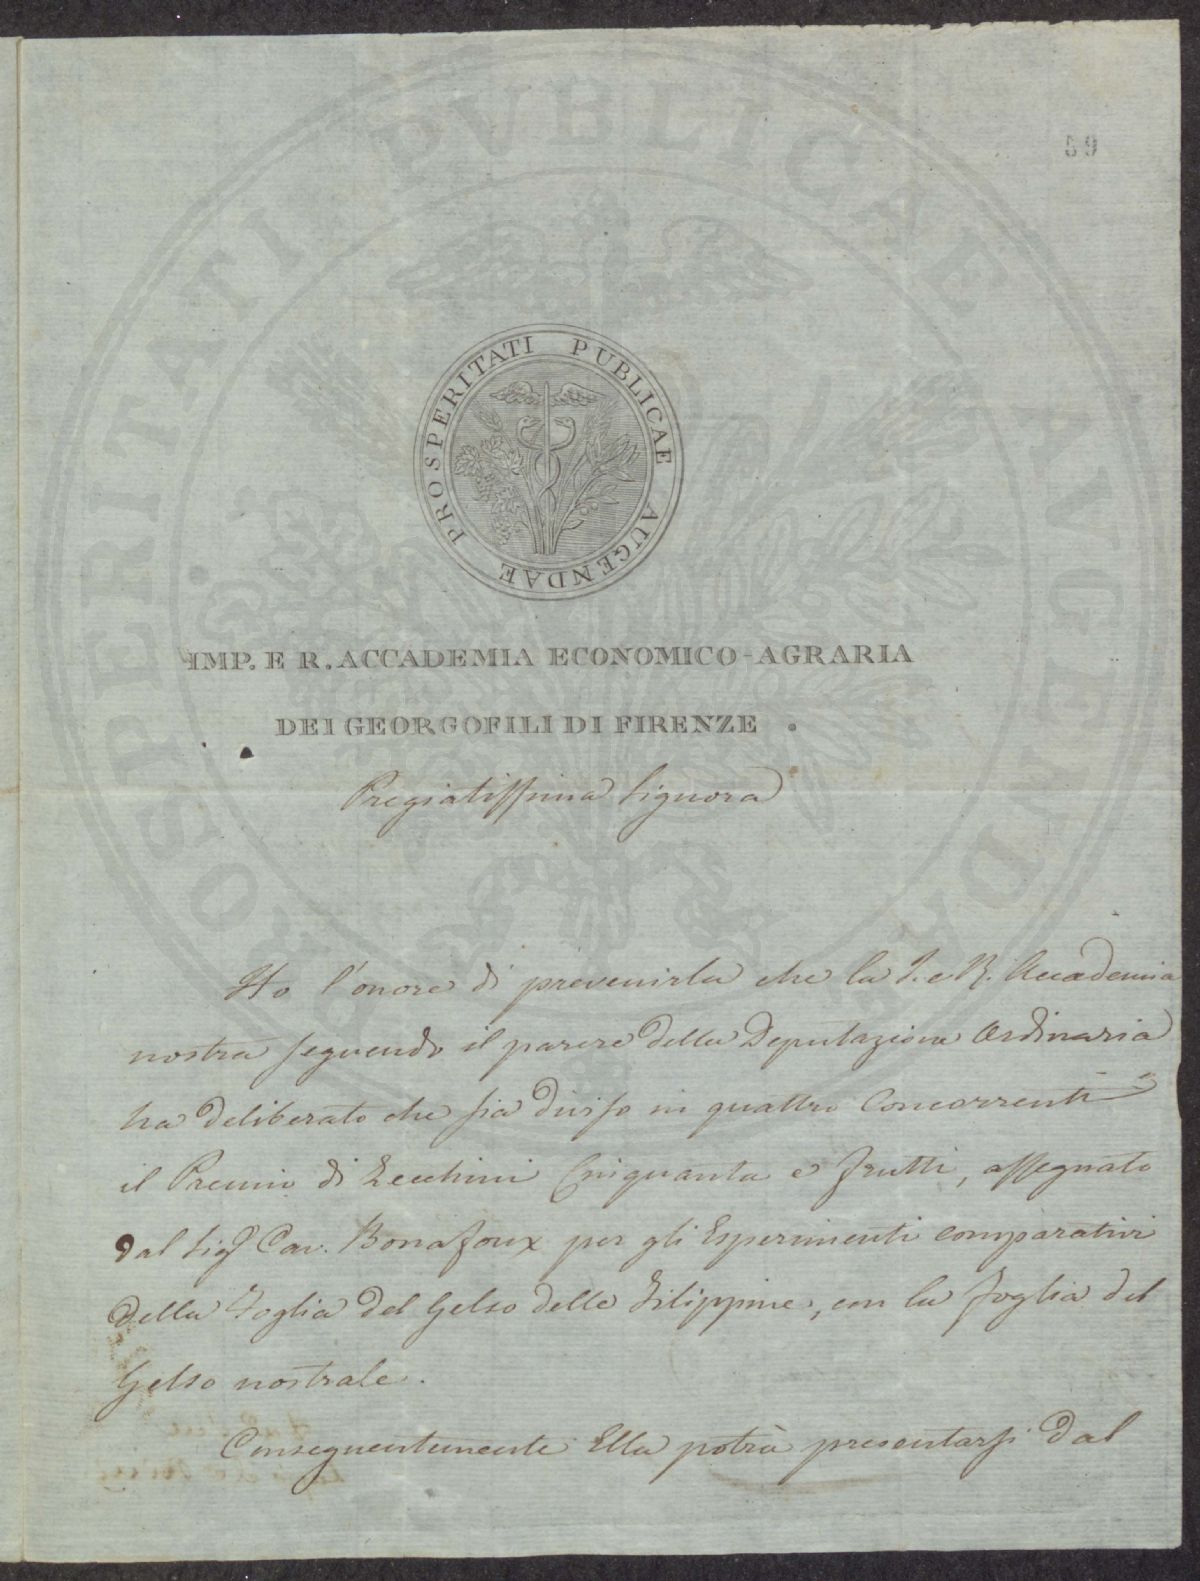 59
PROSPERITATI PUBLICAE AUGENDAE
IMP. E R. ACCADEMIA ECONOMICO-AGRARIA
DEI GEORGOFILI DI FIRENZE.
Pregiatissima Signora
Ho l'onore di prevenirla che la I. e R. Accademia
nostra seguendo il parere della Deputazione Ordinaria
ha deliberato che sia diviso in quattro Concorrenti
il Premio di Zecchini Cinquanta e frutti, assegnato
dal Sig.r Cav. Bonafoux per gli Esperimenti comparativi
della Foglia del Gelso delle Filippine, con la foglia del
Gelso nostrale.
Conseguentemente Ella potrà presentarsi dal